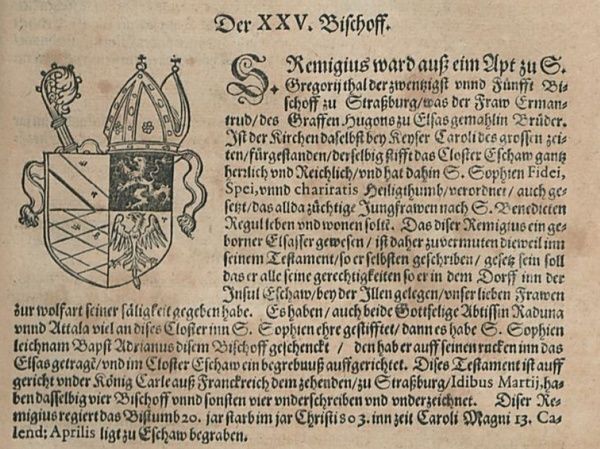 Der XXV. Bischoff.
S. Remigius ward auß eim Apt zu S.
Gregorij thal der zwentzigst vnnd Fünfft Bi-
schoff zu Straßburg/was der Fraw Erman-
trud/des Graffen Hugons zu Elsas gemahlin Brüder.
Ist der Kirchen daselbst bey Keyser Caroli des grossen zei-
ten/fürgestanden/derselbig stifft das Closter Eschaw gantz
herrlich vnd Reichlich/vnd hat dahin S. Sophien Fidei,
Spei, vnnd chariratis Heiligthumb/verordnet/auch ge-
setzt/das allda züchtige Jungfrawen nach S. Benedicten
Regul leben vnd wonen solte. Das diser Remigius ein ge-
borner Elsasser gewesen/ist daher zuvermuten dieweil inn
seinem Testament/so er selbsten geschriben/gesetz sein soll
das er alle seine gerechtigkeiten so er in dem Dorff inn der
Insul Eschaw/bey der Illen gelegen/vnser lieben Frawen
zur wolfart seiner säligkeit gegeben habe. Es haben/auch beide Gottselige Abtissin Raduna
vnnd Attala viel an dises Closter inn S. Sophien ehre gestifftet/dann es habe S. Sophien
leichnam Bapst Adrianus disem Bischoff geschenckt/den hab er auff seinen rucken inn das
Elsas getragē/vnd im Closter Eschaw ein begrebnuß auffgerichtet. Dises Testament ist auff
gericht vnder König Carle auß Franckreich dem zehenden/zu Straßburg/Idibus Martij, ha-
ben dasselbig vier Bischoff vnnd sonsten vier vnderschreiben vnd vnderzeichnet. Diser Re-
migius regiert das Bistumb 20. jar starb im jar Christi 803. inn zeit Caroli Magni 13. Ca-
lend: Aprilis ligt zu Eschaw begraben.